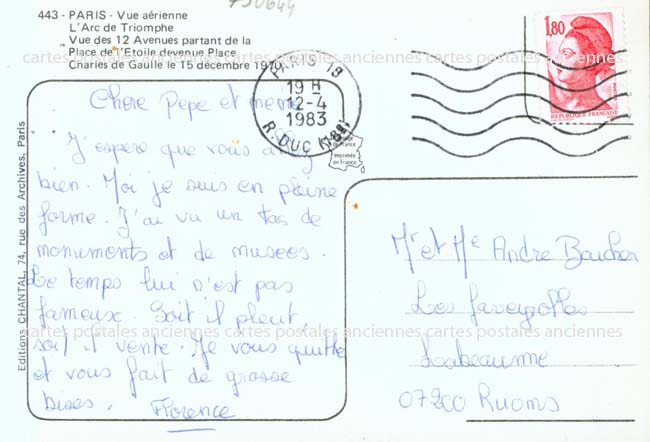 443 - PARIS - Vue aérienne
L'Arc de Triomphe
Vue des 12 Avenues partant de la
Place de l'Etoile devenue Place
Charles de Gaulle le 15 décembre 1970
750644
1,80
REPUBLIQUE FRANÇAISE
PARIS 18
19 H
12-4
1983
R. DUC
de France
imprimée
en France
cartes postales anciennes cartes postales anciennes cartes postales anciennes
Editions CHANTAL, 74, rue des Archives, Paris
Chere Pepe et meme
J'espere que vous allez
bien. Moi je suis en pleine
forme. J'ai vu un tas de
monuments et de musees.
Le temps lui n'est pas
fameux. Soit il pleut,
soit il vente. Je vous quitte
et vous fait de grosse
bises. Florence
cartes postales anciennes cartes postales anciennes cartes postales anciennes
Mr et Me Andre Boucher
Les
Labeaume
07200 Ruoms